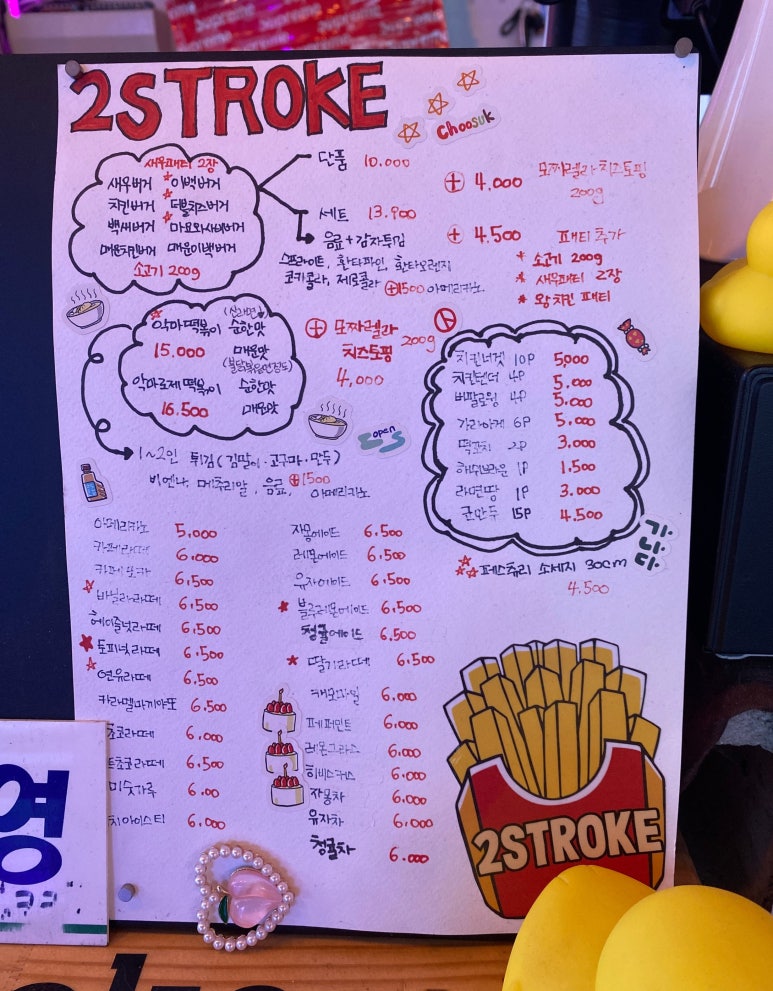 2STROKE
Choosuk
새우패티 2장
새우버거 이백버거
치킨버거 더블치즈버거
백새버거 마요와사비버거
매운치킨버거 매운이백버거
소고기 200g
단품 10.000
세트 13.900
음료+감자튀김
스프라이트, 환타파인, 환타오렌지
코카콜라, 제로콜라 +1500 아메리카노
+ 4.000 모짜렐라치즈토핑
200g
+ 4.500 패티추가
* 소고기 200g
* 새우패티 2장
* 왕치킨 패티
악마떡볶이 순한맛
15.000 매운맛
악마로제떡볶이 순한맛
16.500 매운맛
+ 모짜렐라 200g
치즈토핑
4,000
1~2인 튀김(김말이·고구마·만두)
비엔나, 메추리알, 음료, +1500 아메리카노
open
치킨너겟 10P 5,000
치킨텐더 4P 5.000
버팔로윙 4P 5.000
가라아게 6P 5.000
떡꼬치 2P 3.000
해쉬브라운 1P 1,500
라면땅 1P 3.000
군만두 15P 4.500
가
나
다
페스츄리 소세지 30cm
4.500
아메리카노 5.000
카페라떼 6.000
카페모카 6,500
바닐라라떼 6.500
헤이즐넛라떼 6.500
토피넛라떼 6.500
연유라떼 6.500
카라멜마끼아또 6.500
초코라떼 6.000
초코라떼 6.500
미숫가루 6.00
치아이스티 6.000
자몽에이드 6.500
레몬에이드 6.500
유자에이드 6.500
블루레몬에이드 6,500
청귤에이드 6.500
딸기라떼 6.500
캐모마일 6,000
페퍼민트 6.000
레몬그라스 6.000
히비스커스 6.000
자몽차 6.000
유자차 6.000
청귤차 6.000
2STROKE
영